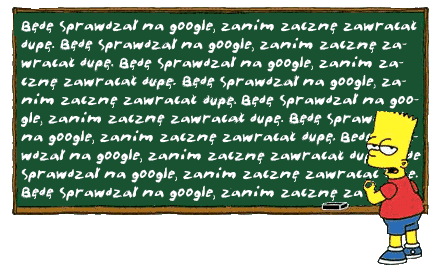 Będę Sprawdzał na google, zanim zacznę zawracał
dupę. Będę Sprawdzał na google, zanim zacznę za-
wracał dupę. Będę Sprawdzał na google, zanim za-
cznę zawracał dupę. Będę Sprawdzał na google, za-
nim zacznę zawracał dupę. Będę Sprawdzał na goo-
gle, zanim zacznę zawracał dupę. Będę Spraw
na google, zanim zacznę zawracał dupę. Będę
wdzał na google, zanim zacznę zawracał du
Sprawdzał na google, zanim zacznę zawracał
Będę Sprawdzał na google, zanim zacznę za